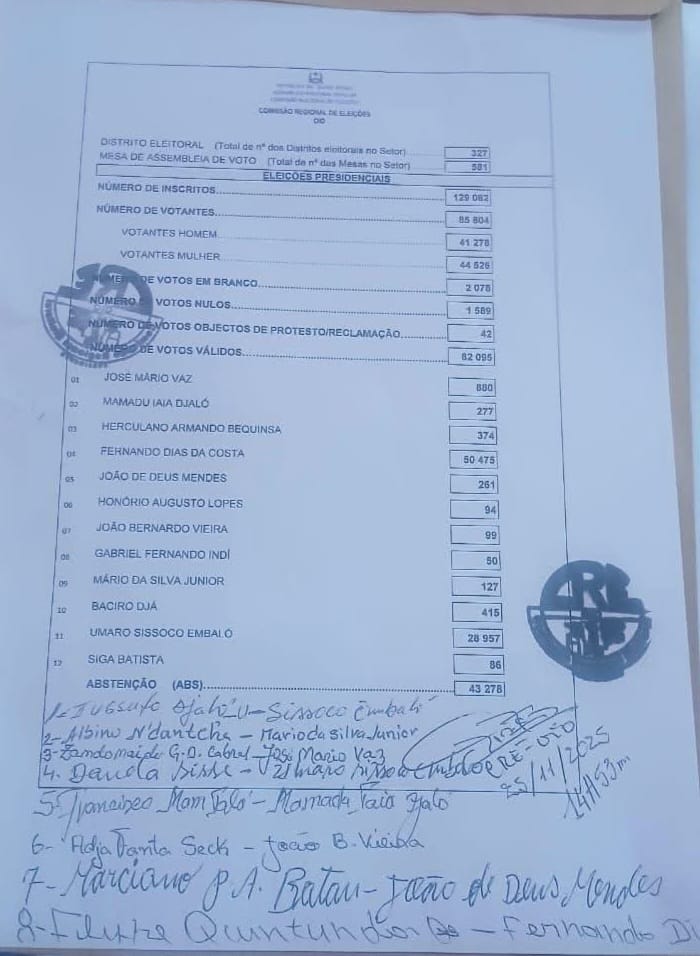 COMISSÃO REGIONAL DE ELEIÇÕES
OIO
DISTRITO ELEITORAL (Total de nº dos Distritos eleitorais no Setor) 327
MESA DE ASSEMBLEIA DE VOTO (Total de nº das Mesas no Setor) 581
ELEIÇÕES PRESIDENCIAIS
NÚMERO DE INSCRITOS 129 082
NÚMERO DE VOTANTES 85 804
VOTANTES HOMEM 41 278
VOTANTES MULHER 44 526
NÚMERO DE VOTOS EM BRANCO 2 078
NÚMERO DE VOTOS NULOS 1 589
NÚMERO DE VOTOS OBJECTOS DE PROTESTO/RECLAMAÇÃO 42
NÚMERO DE VOTOS VÁLIDOS 82 095
01 JOSÉ MÁRIO VAZ 880
02 MAMADU IAIA DJALÓ 277
03 HERCULANO ARMANDO BEQUINSA 374
04 FERNANDO DIAS DA COSTA 50 475
05 JOÃO DE DEUS MENDES 261
06 HONÓRIO AUGUSTO LOPES 94
07 JOÃO BERNARDO VIEIRA 99
08 GABRIEL FERNANDO INDÍ 50
09 MÁRIO DA SILVA JUNIOR 127
10 BACIRO DJÁ 415
11 UMARO SISSOCO EMBALÓ 28 957
12 SIGA BATISTA 86
ABSTENÇÃO (ABS) 43 278
CRE
1- Djaló - Sissoco Embaló
2- Albino N'dantcha - Mario da Silva Junior
3- G.D. Cabral - José Mario Vaz
4. Dauda Sisse - Umaro Sissoco Embaló
CRE-OIO
25/11/2025
14H53m
5- Francisco - Mamadu Iaia Djaló
6- Adja Fanta Seck - João B. Vieira
7- Marciano P.A. Batan - João de Deus Mendes
8- - Fernando Di